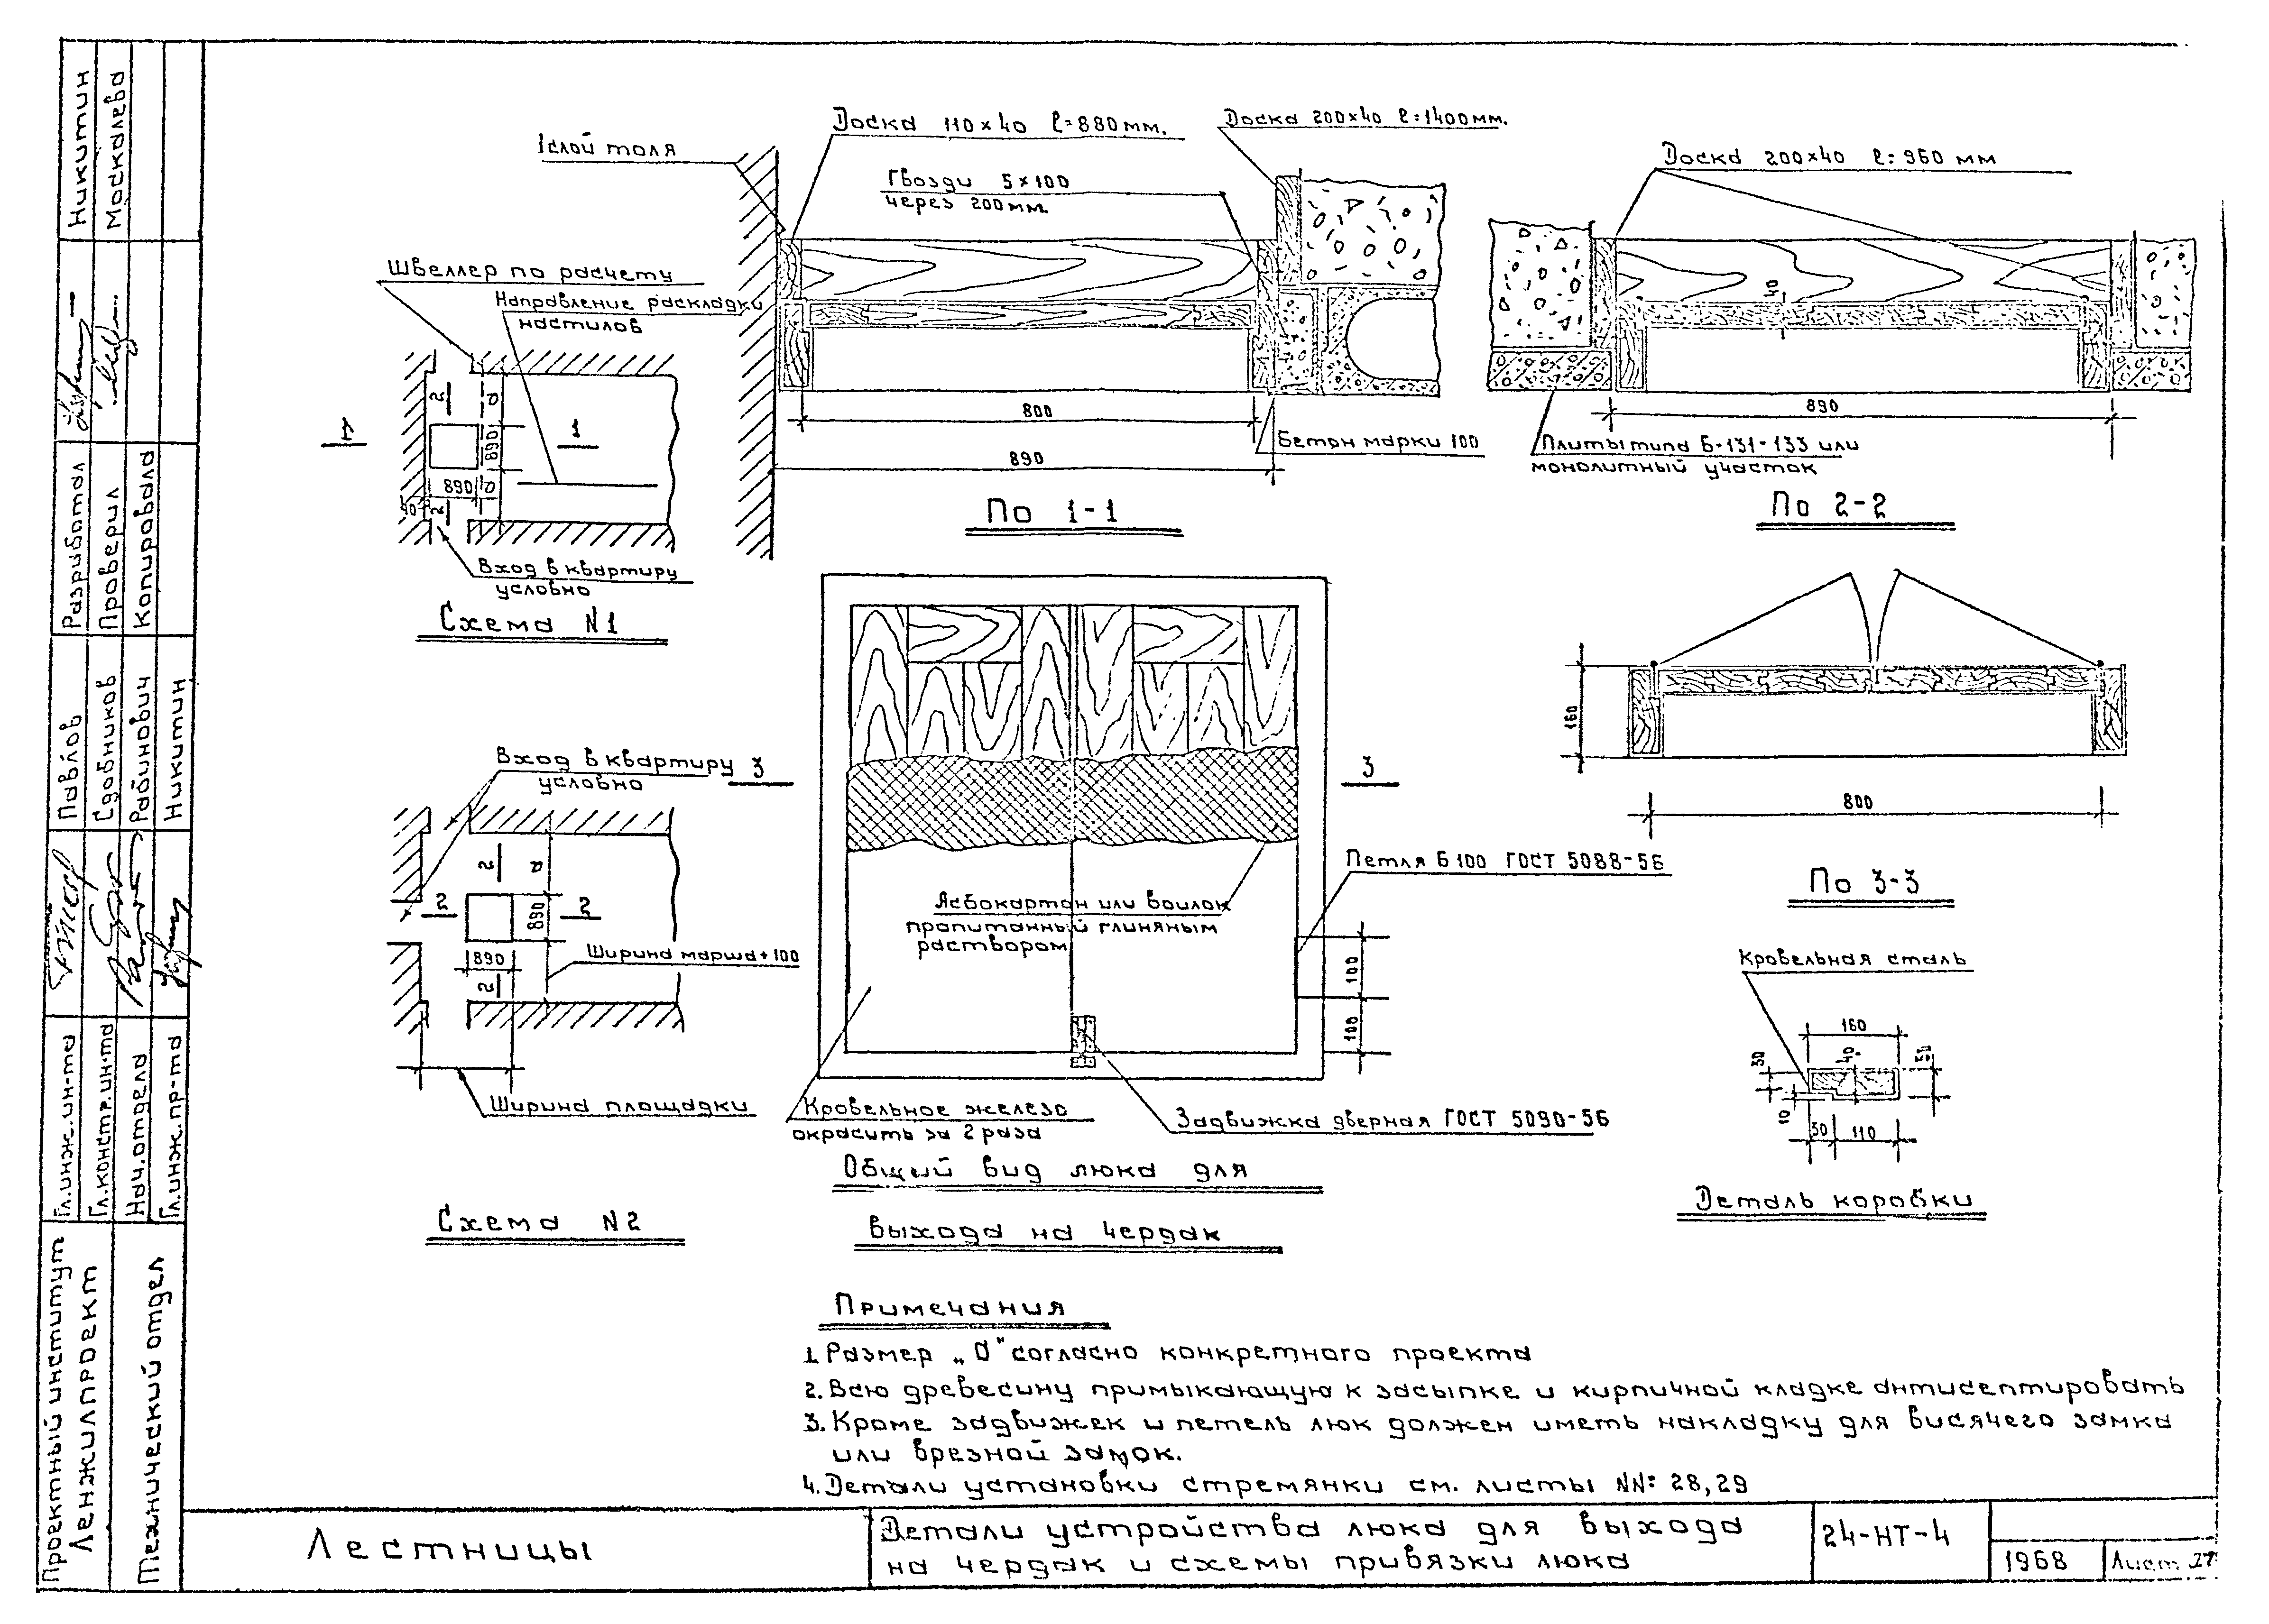 Доска 110×40 ℓ=880мм.
Доска 200×40 ℓ=1400мм.
1слой толя
Гвозди 5×100
через 200мм.
Доска 200×40 ℓ=960 мм
Швеллер по расчету
Направление раскладки
настилов
1
1
2
2
а
890
890
а
40
Вход в квартиру
условно
Схема N1
800
890
Бетон марки 100
По 1-1
40
890
Плиты типа Б-131-133 или
монолитный участок
По 2-2
Вход в квартиру
условно
2
2
2
2
а
890
890
Ширина марша+100
Ширина площадки
Схема N2
3
3
Асбокартон или войлок
пропитанный глиняным
раствором
Петля Б100 ГОСТ 5088-56
100
100
Кровельное железо
окрасить за 2 раза
Задвижка дверная ГОСТ 5090-56
Общий вид люка для
выхода на чердак
160
800
По 3-3
Кровельная сталь
160
30
40
50
10
50
110
Деталь коробки
Примечания
1. Размер „а" согласно конкретного проекта
2. Всю древесину примыкающую к засыпке и кирпичной кладке антисептировать
3. Кроме задвижек и петель люк должен иметь накладку для висячего замка
или врезной замок.
4. Детали установки стремянки см. листы NN: 28, 29
Лестницы
Детали устройства люка для выхода
на чердак и схемы привязки люка
24-НТ-4
1968
Лист 27
Проектный институт
Ленжилпроект
Технический отдел
Гл.инж.ин-та
Гл.констр.ин-та
Нач.отдела
Гл.инж.пр-та
Павлов
Сдобников
Рабинович
Никитин
Разработал
Проверил
Копировала
Никитин
Москалева